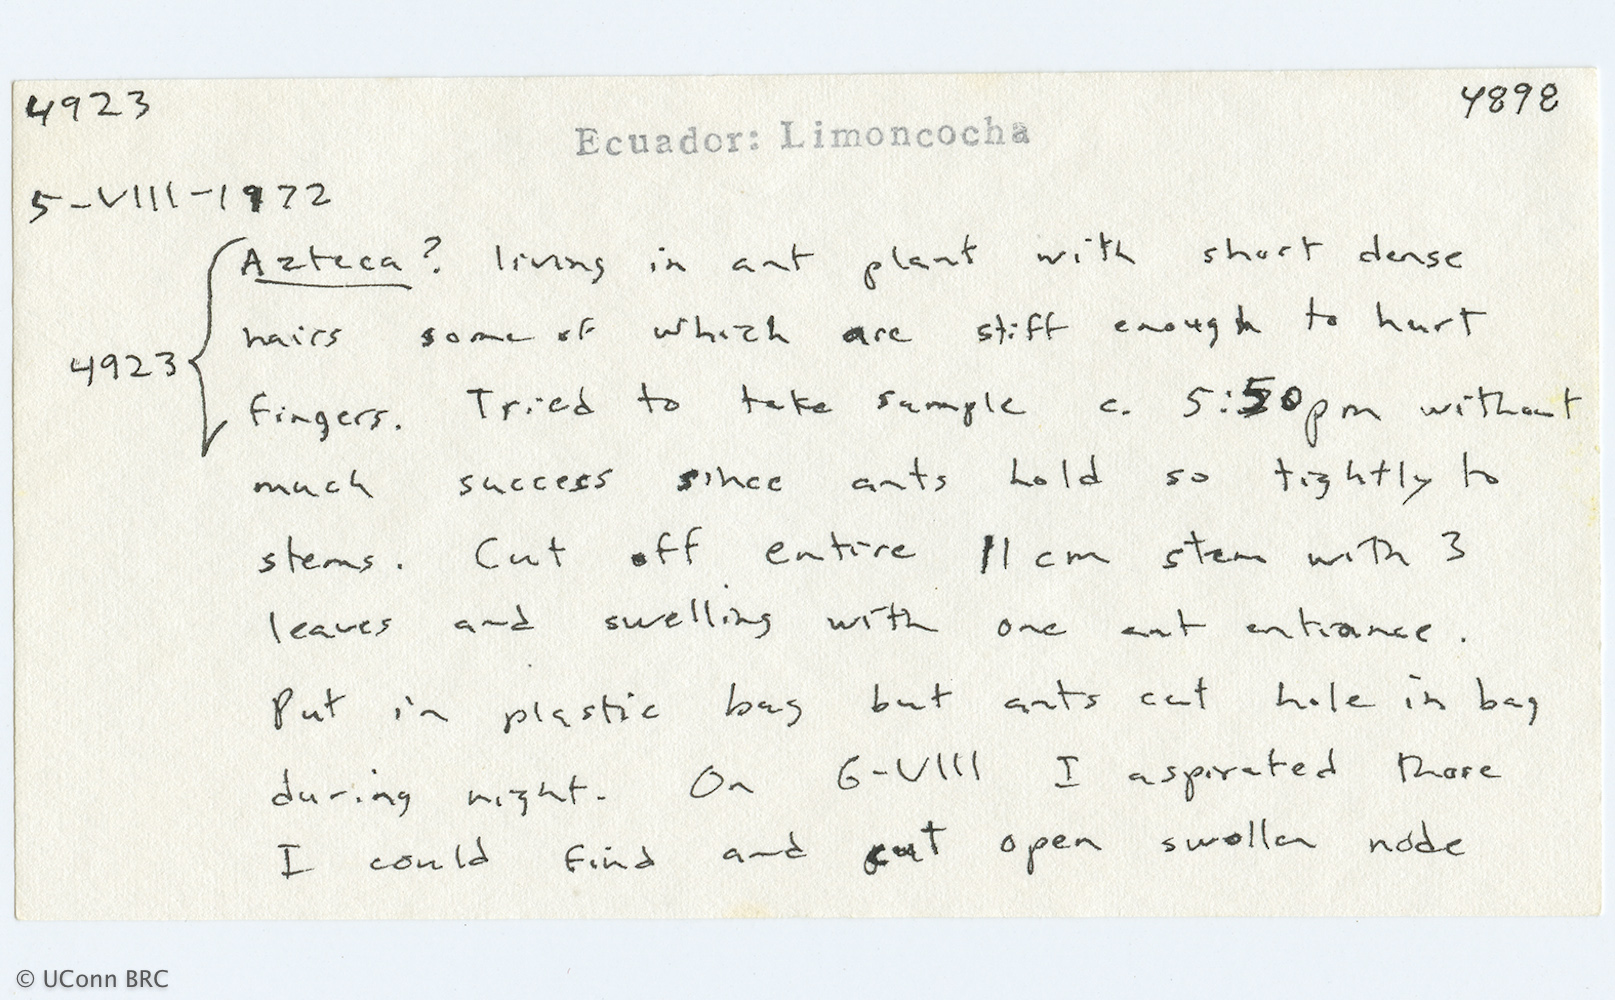 4923
4898
Ecuador: Limoncocha
5-VIII-1972
4923
Azteca? living in ant plant with short dense
hairs some of which are stiff enough to hurt
fingers. Tried to take sample c. 5:50pm without
much success since ants hold so tightly to
stems. Cut off entire 11 cm stem with 3
leaves and swelling with one ant entrance.
Put in plastic bag but ants cut hole in bag
during night. On 6-VIII I aspirated those
I could find and cut open swollen node
© UConn BRC